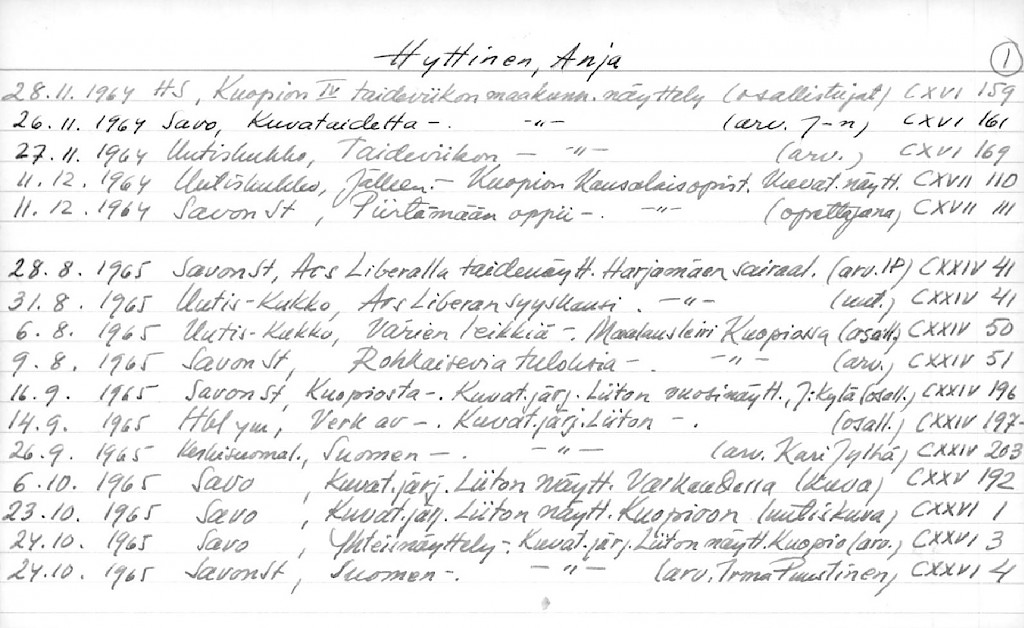 Hyttinen, Anja 1
28.11.1964 HS, Kuopion IV taideviikon maakunn. näyttely (osallistujat) CXVI 159
26.11.1964 Savo, Kuvataidetta -. -"- (arv. J-n) CXVI 161
27.11.1964 Uutiskukko, Taideviikon - -"- (arv.) CXVI 169
11.12.1964 Uutiskukko, Jälleen.- Kuopion Kansalaisopist. Kuvat. näytt. CXVII 110
11.12.1964 Savon St, Piirtämään oppii -. -"- (opettajana) CXVII 111
28.8.1965 Savon St, Ars Liberalla taidenäytt. Harjamäen sairaal. (arv. IP) CXXIV 41
31.8.1965 Uutis-Kukko, Ars Liberan syyskausi. -"- (uut.) CXXIV 41
6.8.1965 Uutis-Kukko, Värien leikkiä -. Maalausleiri Kuopiossa (osall.) CXXIV 50
9.8.1965 Savon St, Rohkaisevia tuloksia -. -"- (arv.) CXXIV 51
16.9.1965 Savon St, Kuopiosta -. Kuvat.järj. Liiton vuosinäytt., J:kylä (osall.) CXXIV 196
14.9.1965 Hbl ym, Verk av -. Kuvat.järj. Liiton -. (osall.) CXXIV 197-
26.9.1965 Keskisuomal., Suomen -. -"- (arv. Kari Jylhä) CXXIV 203
6.10.1965 Savo, Kuvat.järj. Liiton näytt. Varkaudessa (kuva) CXXV 192
23.10.1965 Savo, Kuvat.järj. Liiton näytt. Kuopioon (uutiskuva) CXXVI 1
24.10.1965 Savo, Yhteisnäyttely -. Kuvat.järj. Liiton näytt. Kuopio (arv.) CXXVI 3
24.10.1965 Savon St, Suomen -. -"- (arv. Irma Puustinen) CXXVI 4